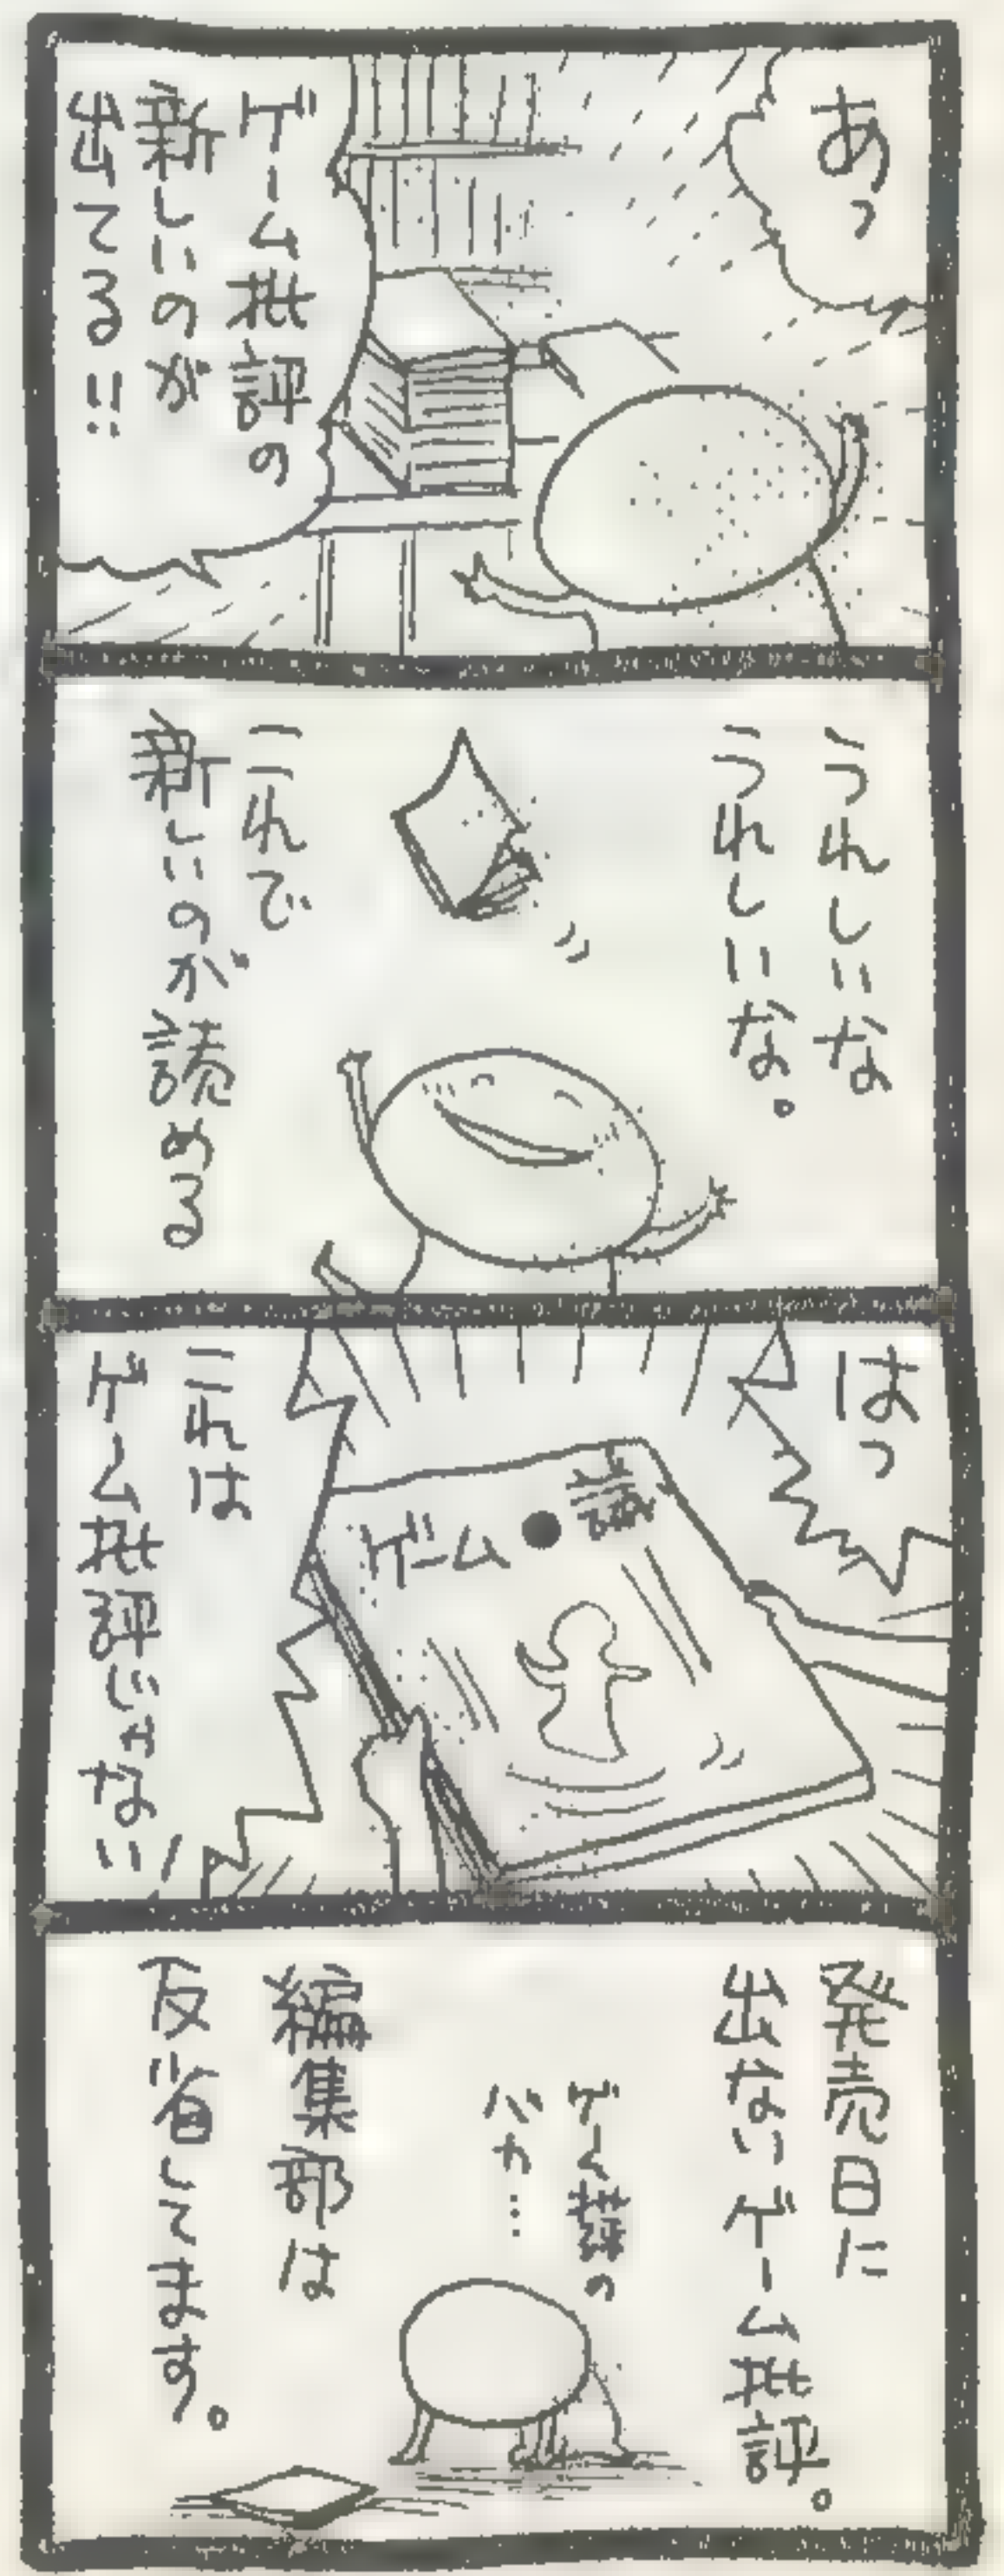 あっ
ゲーム批評の
新しいのが
出てる!!
うれしいな
うれしいな。
これで
新しいのが読める
はっ
ゲーム
これは
ゲーム批評じゃない!
発売日に
出ないゲーム批評。
ゲーム批評の
バカ…
編集部は
反省してます。